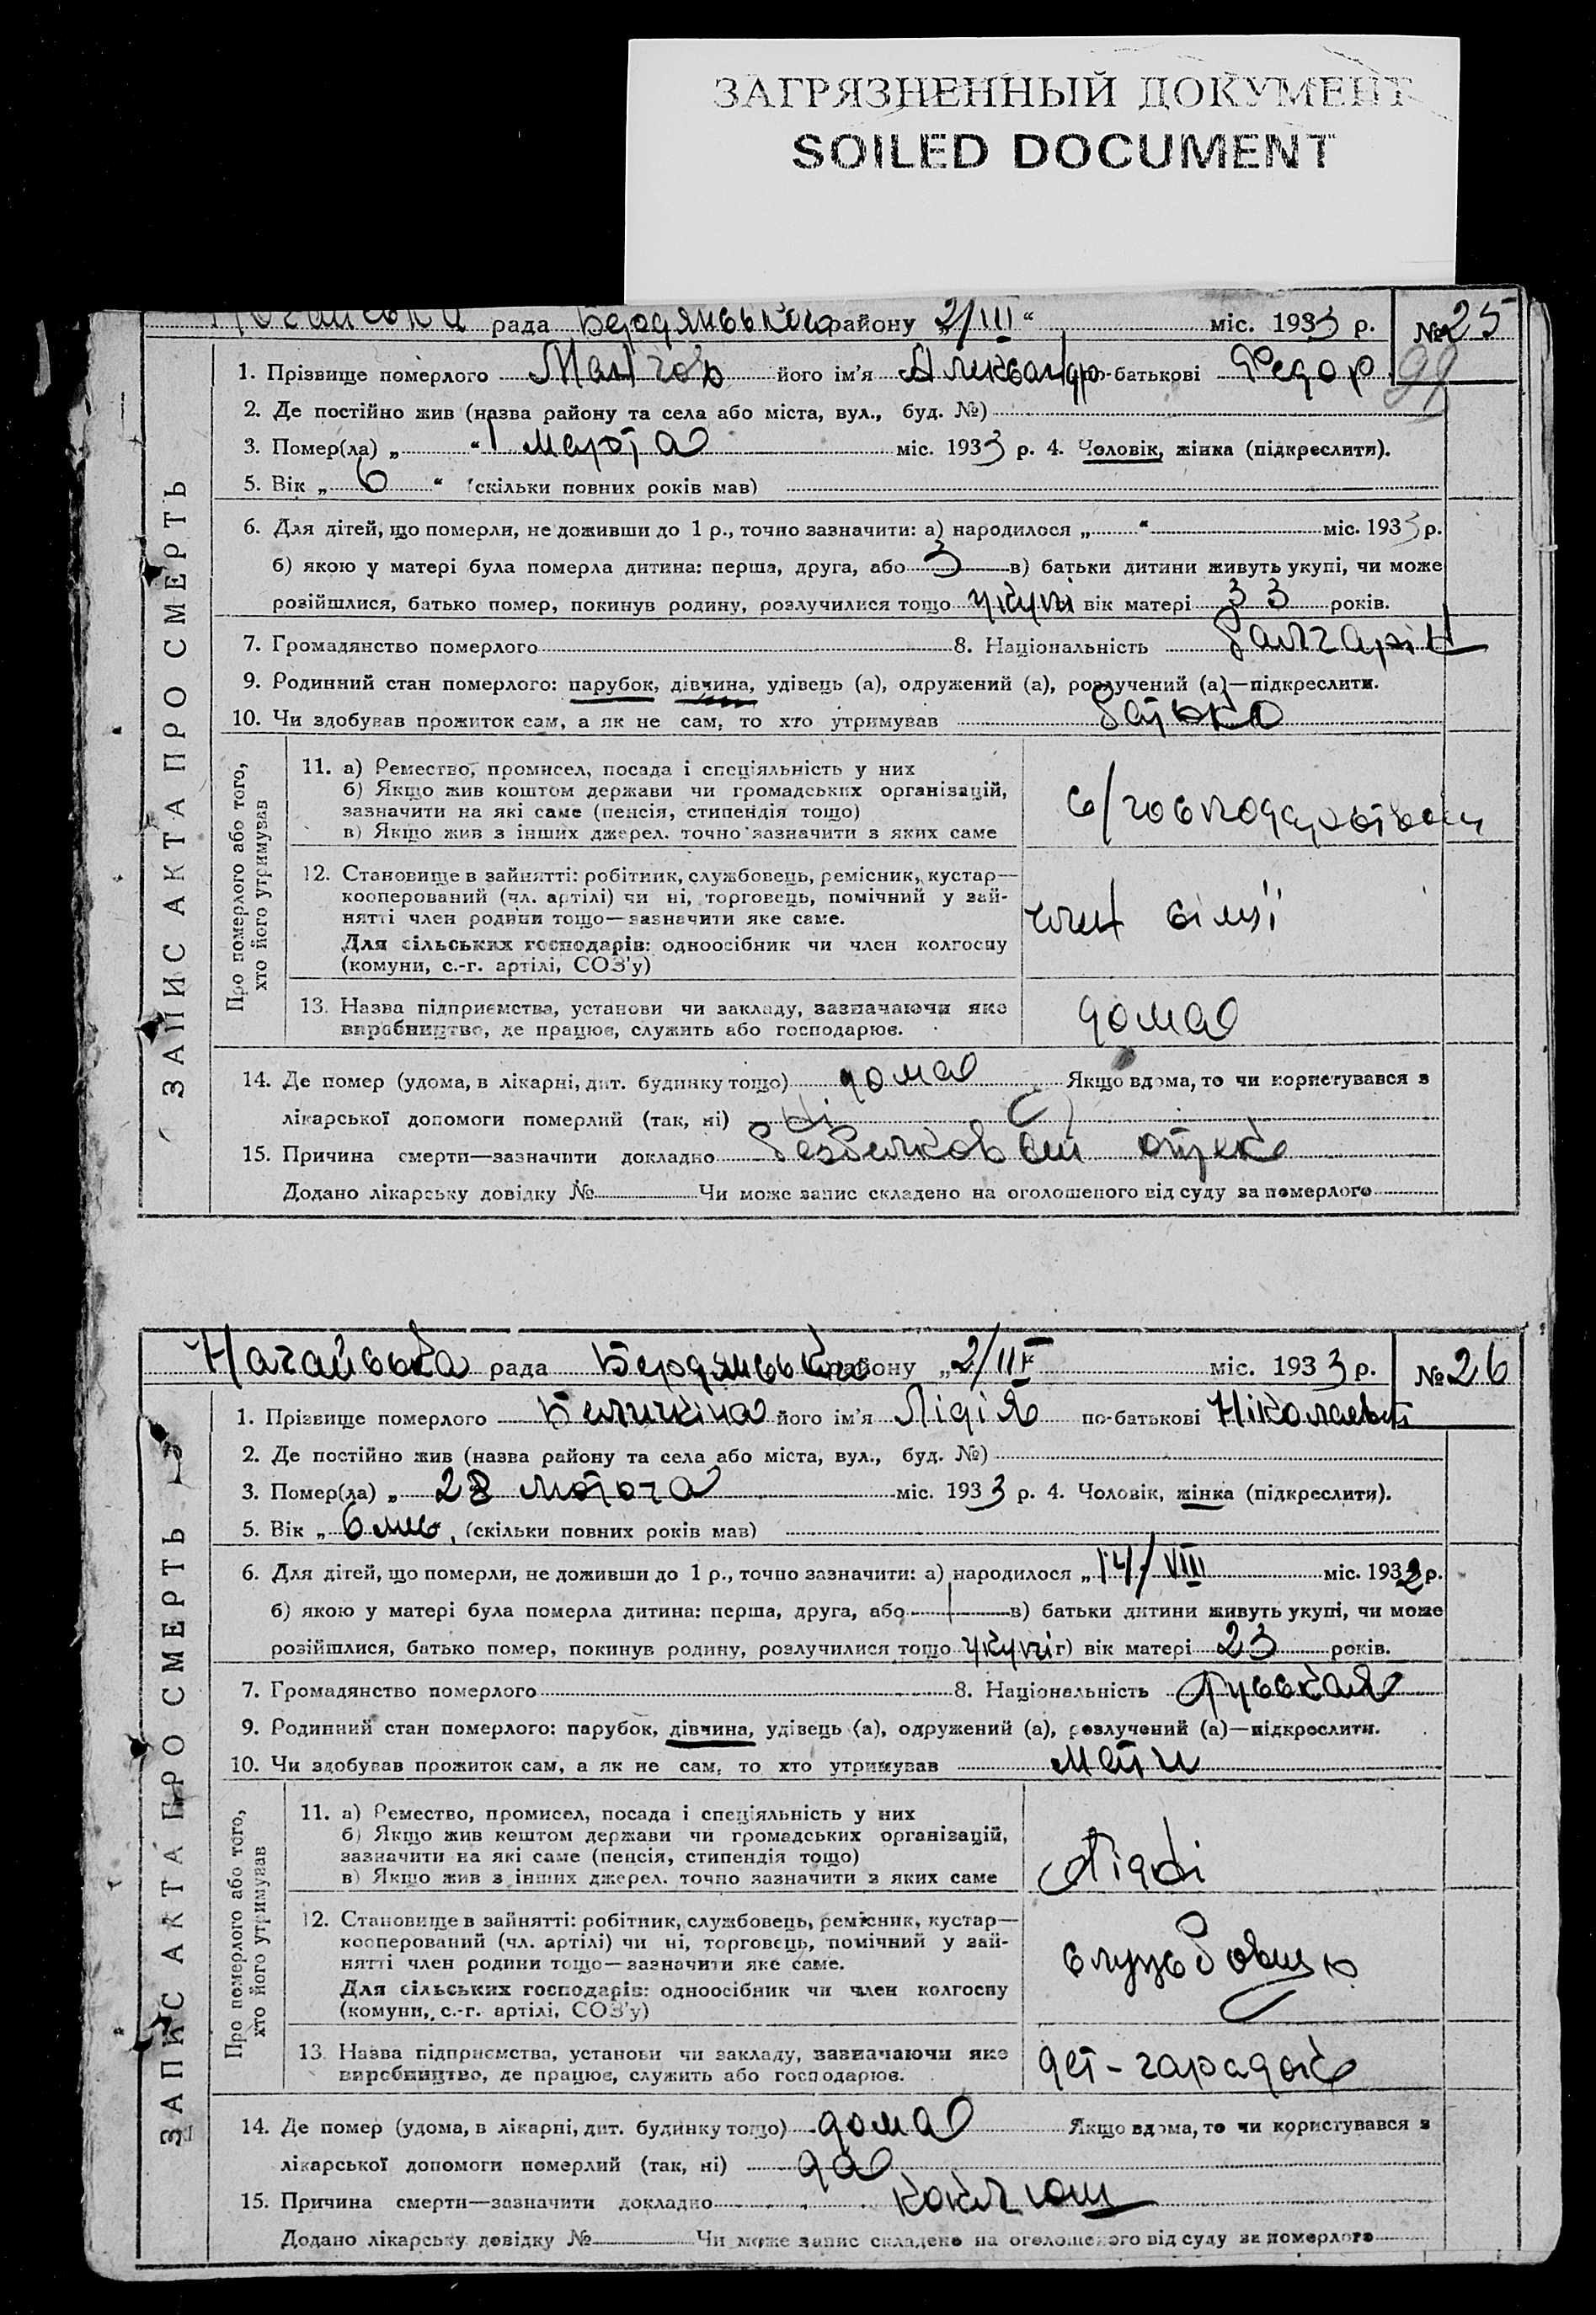 ЗАГРЯЗНЕННЫЙ ДОКУМЕНТ
SOILED DOCUMENT
рада Бердянського району „2/III“ міс. 1933 р. № 25
99
1. Прізвище померлого його ім'я Александр по-батькові Федор
2. Де постійно жив (назва району та села або міста, вул., буд. №)
3. Помер(ла) „ “ 1 марта міс. 1933 р. 4. Чоловік, жінка (підкреслити).
5. Вік „ 6 “ (скільки повних років мав)
6. Для дітей, що померли, не доживши до 1 р., точно зазначити: а) народилося „ “ міс. 1933 р.
б) якою у матері була померла дитина: перша, друга, або 3 в) батьки дитини живуть укупі, чи може
розійшлися, батько помер, покинув родину, розлучилися тощо укупі вік матері 33 років.
7. Громадянство померлого 8. Національність
9. Родинний стан померлого: парубок, дівчина, удівець (а), одружений (а), розлучений (а)—підкреслити.
10. Чи здобував прожиток сам, а як не сам, то хто утримував батько
ЗАПИС АКТА ПРО СМЕРТЬ
Про померлого або того, хто його утримував
11. а) Ремество, промисел, посада і спеціяльність у них
б) Якщо жив коштом держави чи громадських організацій,
зазначити на які саме (пенсія, стипендія тощо)
в) Якщо жив з інших джерел. точно зазначити з яких саме
12. Становище в зайнятті: робітник, службовець, ремісник, кустар—
кооперований (чл. артілі) чи ні, торговець, помічний у зай-
нятті член родини тощо—зазначити яке саме.
Для сільських господарів: одноосібник чи член колгоспу
(комуни, с.-г. артілі, СОЗ'у)
член сімї
13. Назва підприємства, установи чи закладу, зазначаючи яке
виробництво, де працює, служить або господарює.
дома
14. Де помер (удома, в лікарні, дит. будинку тощо) дома Якщо вдома, то чи користувався з
лікарської допомоги померлий (так, ні) ні
15. Причина смерти—зазначити докладно безбелковой отек
Додано лікарську довідку № Чи може запис складено на оголошеного від суду за померлого
Нагайська рада Бердянського району „2/III міс. 1933 р. № 26
1. Прізвище померлого його ім'я Лідія по-батькові
2. Де постійно жив (назва району та села або міста, вул., буд. №)
3. Помер(ла) „ 28 лютого міс. 1933 р. 4. Чоловік, жінка (підкреслити).
5. Вік „ 6 мис. (скільки повних років мав)
6. Для дітей, що померли, не доживши до 1 р., точно зазначити: а) народилося „ 14/VIII міс. 1932 р.
б) якою у матері була померла дитина: перша, друга, або 1 в) батьки дитини живуть укупі, чи може
розійшлися, батько помер, покинув родину, розлучилися тощо укупі г) вік матері 23 років.
7. Громадянство померлого 8. Національність руськая
9. Родинний стан померлого: парубок, дівчина, удівець (а), одружений (а), розлучений (а)—підкреслити.
10. Чи здобував прожиток сам, а як не сам, то хто утримував мати
ЗАПИС АКТА ПРО СМЕРТЬ
Про померлого або того, хто його утримував
11. а) Ремество, промисел, посада і спеціяльність у них
б) Якщо жив коштом держави чи громадських організацій,
зазначити на які саме (пенсія, стипендія тощо)
в) Якщо жив з інших джерел. точно зазначити з яких саме
12. Становище в зайнятті: робітник, службовець, ремісник, кустар—
кооперований (чл. артілі) чи ні, торговець, помічний у зай-
нятті член родини тощо—зазначити яке саме.
Для сільських господарів: одноосібник чи член колгоспу
(комуни, с.-г. артілі, СОЗ'у)
13. Назва підприємства, установи чи закладу, зазначаючи яке
виробництво, де працює, служить або господарює.
14. Де помер (удома, в лікарні, дит. будинку тощо) дома Якщо вдома, то чи користувався з
лікарської допомоги померлий (так, ні) да
15. Причина смерти—зазначити докладно коклюш
Додано лікарську довідку № Чи може запис складено на оголошеного від суду за померлого